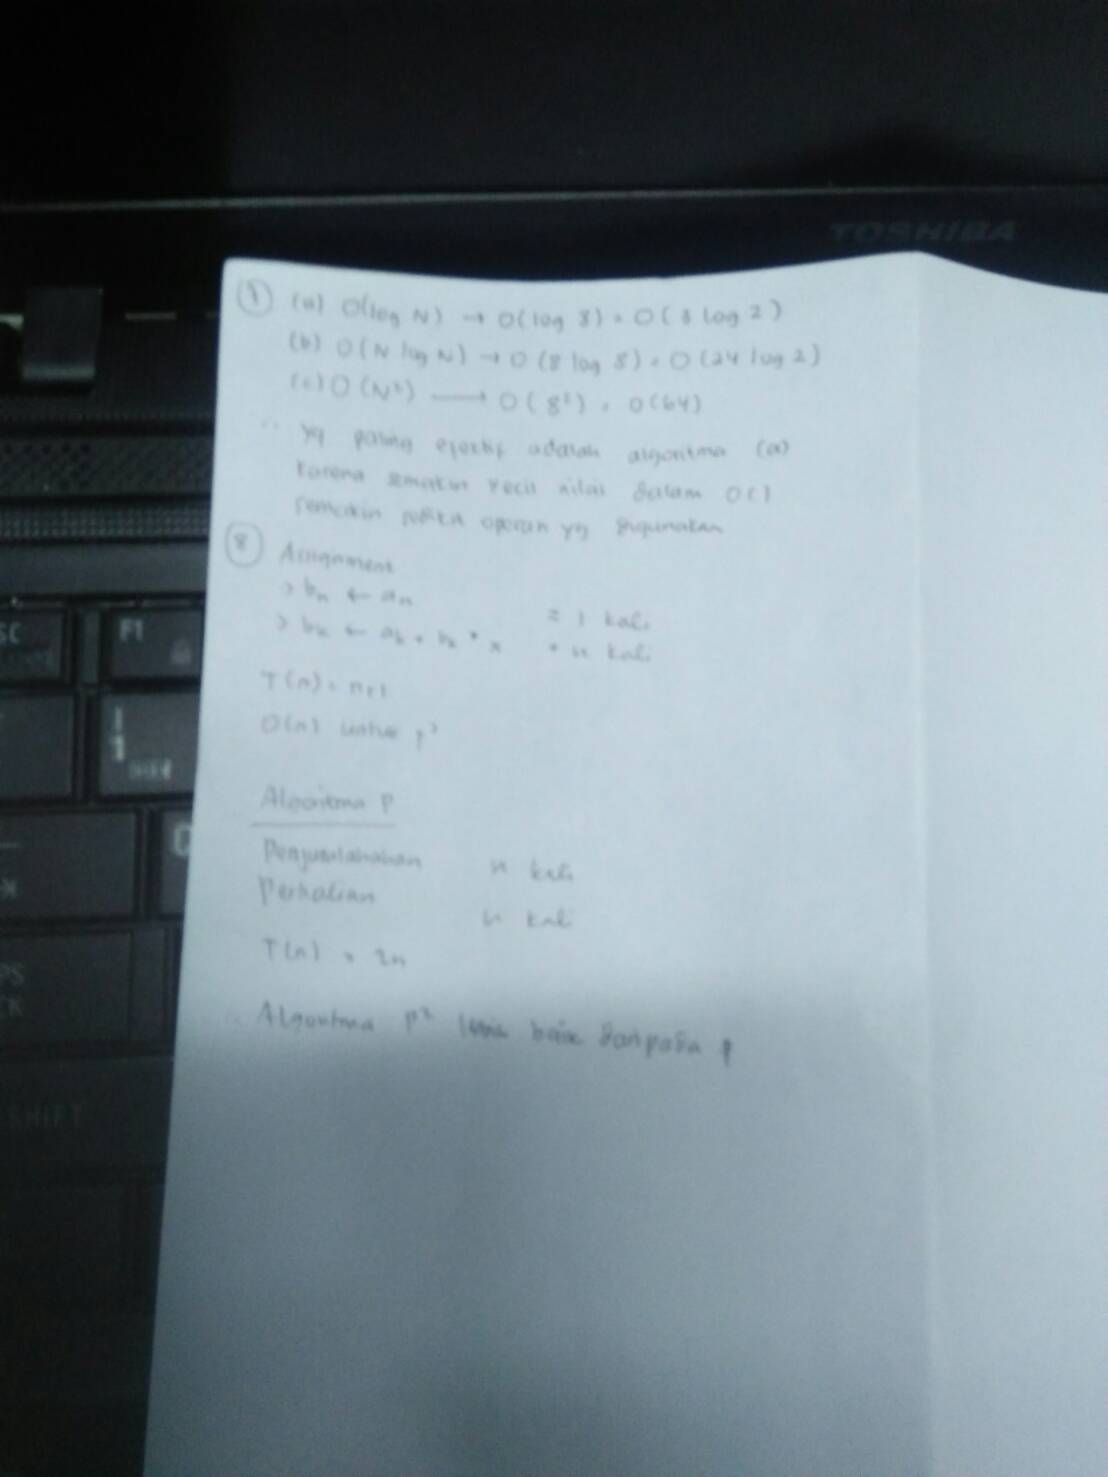 TOSHIBA
(a) O(log N) → O(log 8) = O(3 log 2)
(b) O(N log N) → O(8 log 8) = O(24 log 2)
(c) O(N²) → O(8²) = O(64)
yg paling efektif adalah algoritma (a)
karena semakin kecil nilai dalam O( )
semakin yg digunakan
8 Assignment
bₙ ← aₙ = 1 kali
bₖ ← aₖ + bₖ * x = n kali
T(n) = n+1
O(n) untuk p²
Algoritma P
n kali
Perkalian n kali
T(n) = 2n
Algoritma p² baik daripada p
F1
SHIFT